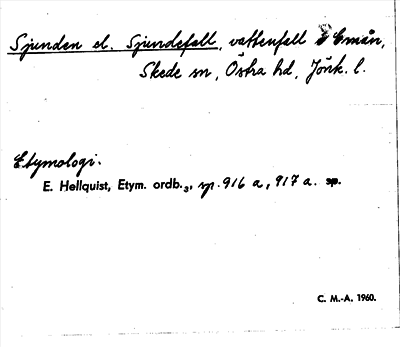 Sjunden el. Sjundefall, vattenfall i Emån,
Skede sn, Östra hd, Jönk. l.
Etymologi.
E. Hellquist, Etym. ordb.3, sp. 916 a, 917 a. sp.
C. M.-A. 1960.